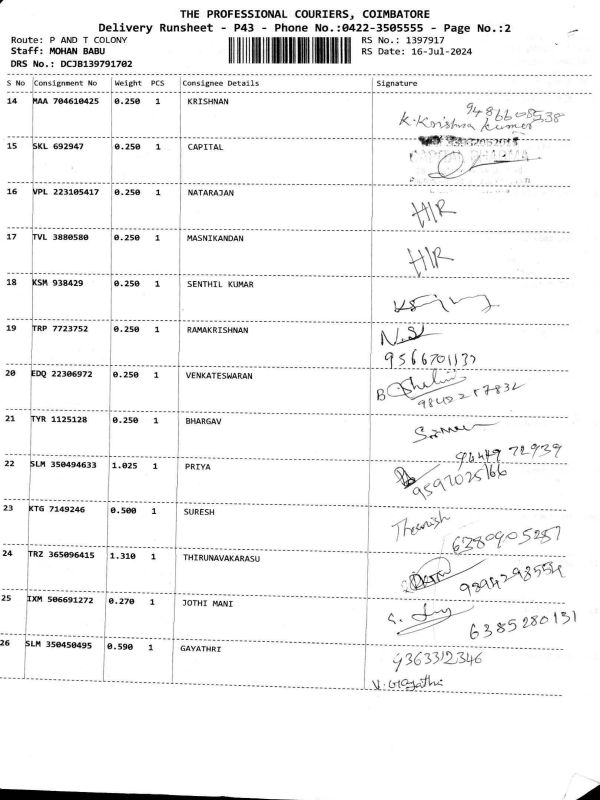 THE PROFESSIONAL COURIERS, COIMBATORE
Delivery Runsheet - P43 - Phone No.:0422-3505555 - Page No.:2
Route: P AND T COLONY RS No.: 1397917
Staff: MOHAN BABU RS Date: 16-Jul-2024
DRS No.: DCJB139791702
S No Consignment No Weight PCS Consignee Details Signature
14 MAA 704610425 0.250 1 KRISHNAN
9486608538
K. Krishna Kumar
15 SKL 692947 0.250 1 CAPITAL
16 VPL 223105417 0.250 1 NATARAJAN
H/R
17 TVL 3880580 0.250 1 MASNIKANDAN
H/R
18 KSM 938429 0.250 1 SENTHIL KUMAR
19 TRP 7723752 0.250 1 RAMAKRISHNAN
9566701137
20 EDQ 22306972 0.250 1 VENKATESWARAN
21 TYR 1125128 0.250 1 BHARGAV
96449 72939
22 SLM 350494633 1.025 1 PRIYA
9597025166
23 KTG 7149246 0.500 1 SURESH
Tharnish
6380905287
24 TRZ 365096415 1.310 1 THIRUNAVAKARASU
9894298554
25 IXM 506691272 0.270 1 JOTHI MANI
6385280131
26 SLM 350450495 0.590 1 GAYATHRI
9363312346
V. Gayathri